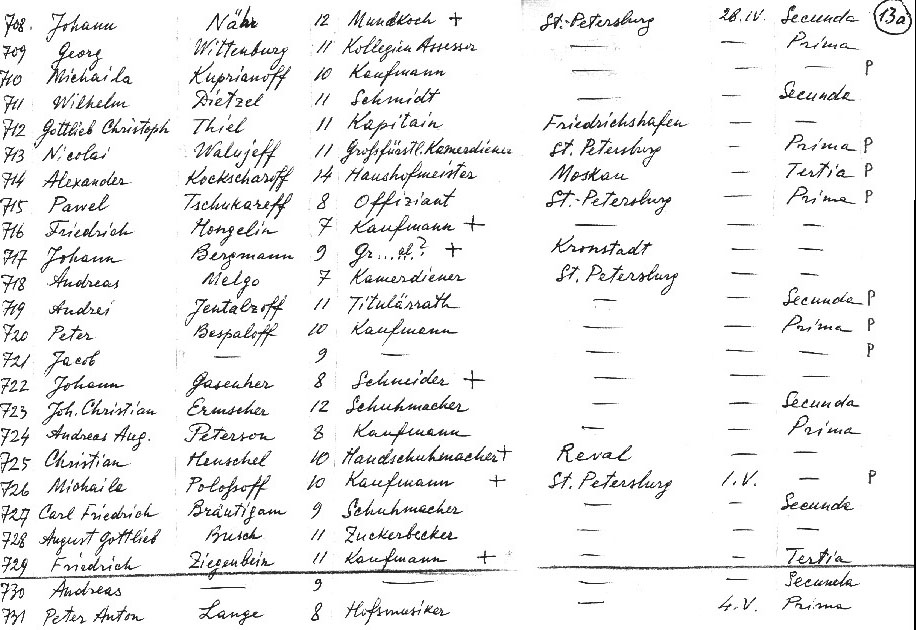 708. Johann Nähr 12 Mundkoch + St.-Petersburg 28.IV. Secunda 13a
709 Georg Wittenburg 11 Kollegien Assessor — — Prima
710 Michaila Kuprianoff 10 Kaufmann — — — P
711 Wilhelm Dietzel 11 Schmidt — — Secunda
712 Gottlieb Christoph Thiel 11 Kapitain Friedrichshafen — —
713 Nicolai Walujeff 11 Großfürstl. Kamerdiener St. Petersburg — Prima P
714 Alexander Kockscharoff 14 Haushofmeister Moskau — Tertia P
715 Pawel Tschukareff 8 Offiziant St.-Petersburg — Prima P
716 Friedrich Hongelin 7 Kaufmann + — — —
717 Johann Bergmann 9 Gr...ef.? + Kronstadt — —
718 Andreas Melgo 7 Kamerdiener St. Petersburg — —
719 Andrei Jentalzoff 11 Titulärrath — — Secunda P
720 Peter Bespaloff 10 Kaufmann — — Prima P
721 Jacob — 9 — — — — P
722 Johann Gasenher 8 Schneider + — — —
723 Joh. Christian Ermscher 12 Schuhmacher — — Secunda
724 Andreas Aug. Peterson 8 Kaufmann — — Prima
725 Christian Henschel 10 Handschuhmacher + Reval — —
726 Michaila Poloßoff 10 Kaufmann + St. Petersburg 1.V. — P
727 Carl Friedrich Bräutigam 9 Schuhmacher — — Secunda
728 August Gottlieb Busch 11 Zuckerbecker — — —
729 Friedrich Ziegenbein 11 Kaufmann + — — Tertia
730 Andreas — 9 — — — Secunda
731 Peter Anton Lange 8 Hofsmusiker — 4.V. Prima